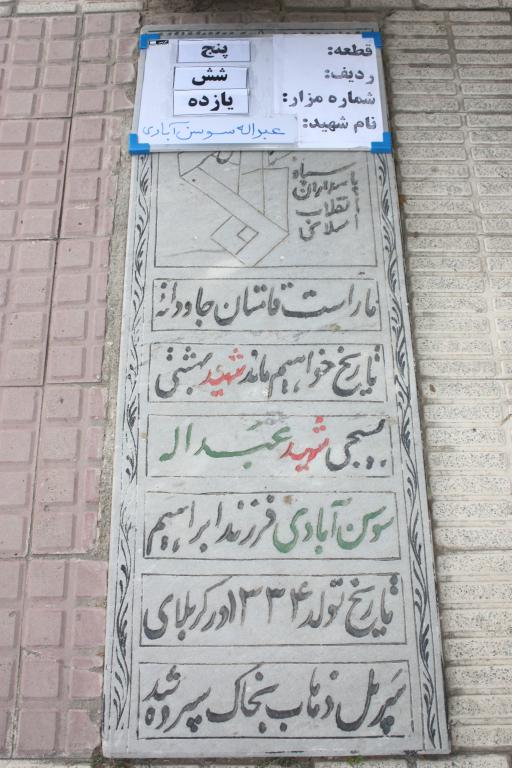 قطعه: پنج
ردیف: شش
شماره مزار: یازده
نام شهید: عبداله سوسن آبادی
سپاه
پاسداران
انقلاب
اسلامی
ما راست قامتان جاودانه
تاریخ خواهیم ماند شهید بهشتی
بسیجی شهید عبداله
سوسن آبادی فرزند ابراهیم
تاریخ تولد ۱۳۳۴ در کربلای
سرپل ذهاب بخاک سپرده شد